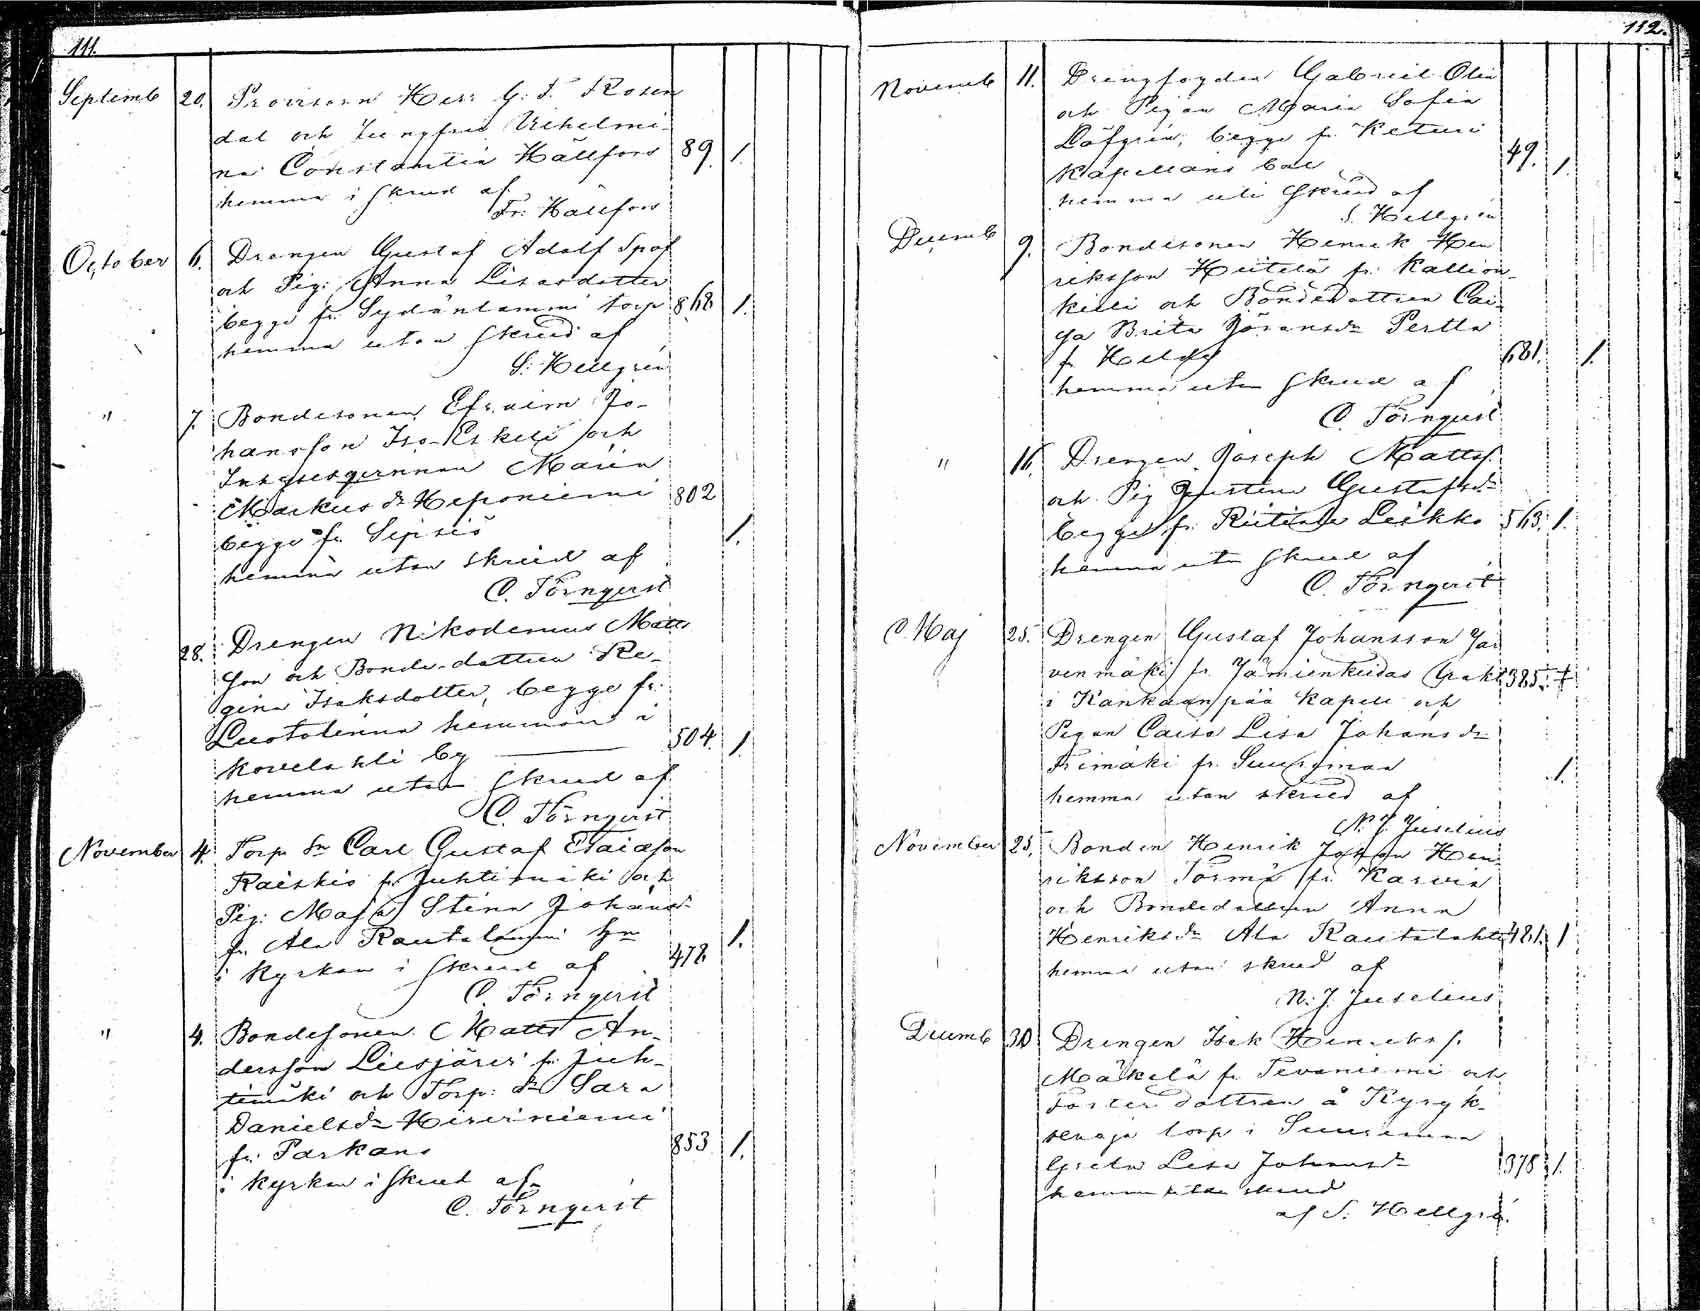 111.
Septemb 20. Provisorn Herr G: F. Rosen
dal och Jungfrun Vilhelmi-
na Constantia Hällfors 89. 1.
hemma i skrud af
Fr: Hällfors
October 6. Drengen Gustaf Adolf Spof
och Pig: Anna Lisasdotter
begge fr. Sydänlammi torp 868 1.
hemma utan skrud af
S: Hellgren
" 7. Bondesonen Efraim Jo-
hansson Iso-Eskeli och
Inhysesqvinnan Maria
Markus dr Heponiemi 802
begge fr. Sipsiö 1.
hemma utan skrud af
C. Törnqvist
28. Drengen Nikodemus Matts
son och Bonde-dottren Re-
gina Isaksdotter, begge fr.
hemman i
Kovelahti by 504. 1.
hemma utan skrud af
C. Törnqvist
November 4. Torp Sn Carl Gustaf
fr. Juhtimäki och
Pig: Maja Stina Johansdr 1.
fr. Ala Rautalammi hmn
i Kyrkan i skrud af 478
C. Törnqvist
" 4. Bondesonen Matts An-
dersson Liesjärvi fr. Juh-
timäki och Torp: dr Sara
Danielsdr Hirviniemi
fr. Parkano 853 1.
i Kyrkan i skrud af
C. Törnqvist
112.
Novemb 11. Drengfogden Gabriel Olin
och Pigan Maria Sofia
Löfgren, begge fr. Keturi
Kapellans bol 49. 1.
hemma uti skrud af
S. Hellgren
Decemb 9. Bondesonen Henrik Hen
riksson Hietelä fr. Kallion-
kieli och Bondedottren Cai-
sa Brita Göransdr Pertta
fr. 681. 1.
hemma utan skrud af
C. Törnqvist
" 16. Drengen Joseph Mattss.
och Pig Justina Gustafsdr
begge fr. Leikko 563. 1.
hemma utan skrud af
C. Törnqvist
Maj 25. Drengen Gustaf Johansson Jär
venmäki fr. Jämienkeidas trakt 385. +
i Kankaanpää Kapell och
Pigan Caisa Lisa Johansdr
fr. Suurimaa 1.
hemma utan skrud af
N. J. Juselius
November 25. Bonden Henrik Johan Hen
riksson Törmä fr. Karvia
och Bondedottren Anna
Henriksdr Ala Rautalahti 481. 1
hemma utan skrud af
N. J. Juselius
Decemb 30 Drengen Isak Henrikss.
Mäkelä fr. Tevaniemi och
Foster dottren å Kyrök-
torp i Suurimaa
Greta Lisa Johansdr 378 1.
hemma utan skrud
af S: Hellgren